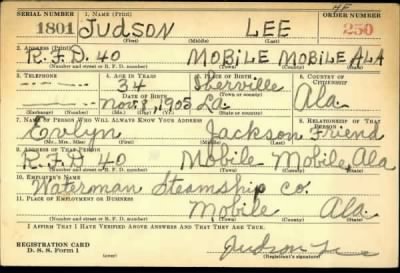 HF
SERIAL NUMBER 1. NAME (Print) ORDER NUMBER
1801 JUDSON LEE 250
(First) (Middle) (Last)
2. ADDRESS (Print)
R.F.D. 40 MOBILE MOBILE ALA
(Number and street or R. F. D. number) (Town) (County) (State)
3. TELEPHONE 4. AGE IN YEARS 5. PLACE OF BIRTH 6. COUNTRY OF CITIZENSHIP
34 Iberville
DATE OF BIRTH (Town or county)
Nov. 8, 1905 La. Ala.
(Exchange) (Number) (Mo.) (Day) (Yr.) (State or country)
7. NAME OF PERSON WHO WILL ALWAYS KNOW YOUR ADDRESS 8. RELATIONSHIP OF THAT PERSON
Evelyn Jackson Friend
(Mr., Mrs., Miss) (First) (Middle) (Last)
9. ADDRESS OF THAT PERSON
R.F.D 40 Mobile Mobile Ala
(Number and street or R. F. D. number) (Town) (County) (State)
10. EMPLOYER'S NAME
Waterman Steamship Co.
11. PLACE OF EMPLOYMENT OR BUSINESS
Mobile Ala.
(Number and street or R. F. D. number) (Town) (County) (State)
I AFFIRM THAT I HAVE VERIFIED ABOVE ANSWERS AND THAT THEY ARE TRUE.
REGISTRATION CARD
D. S. S. Form 1 Judson Lee
(Registrant's signature)